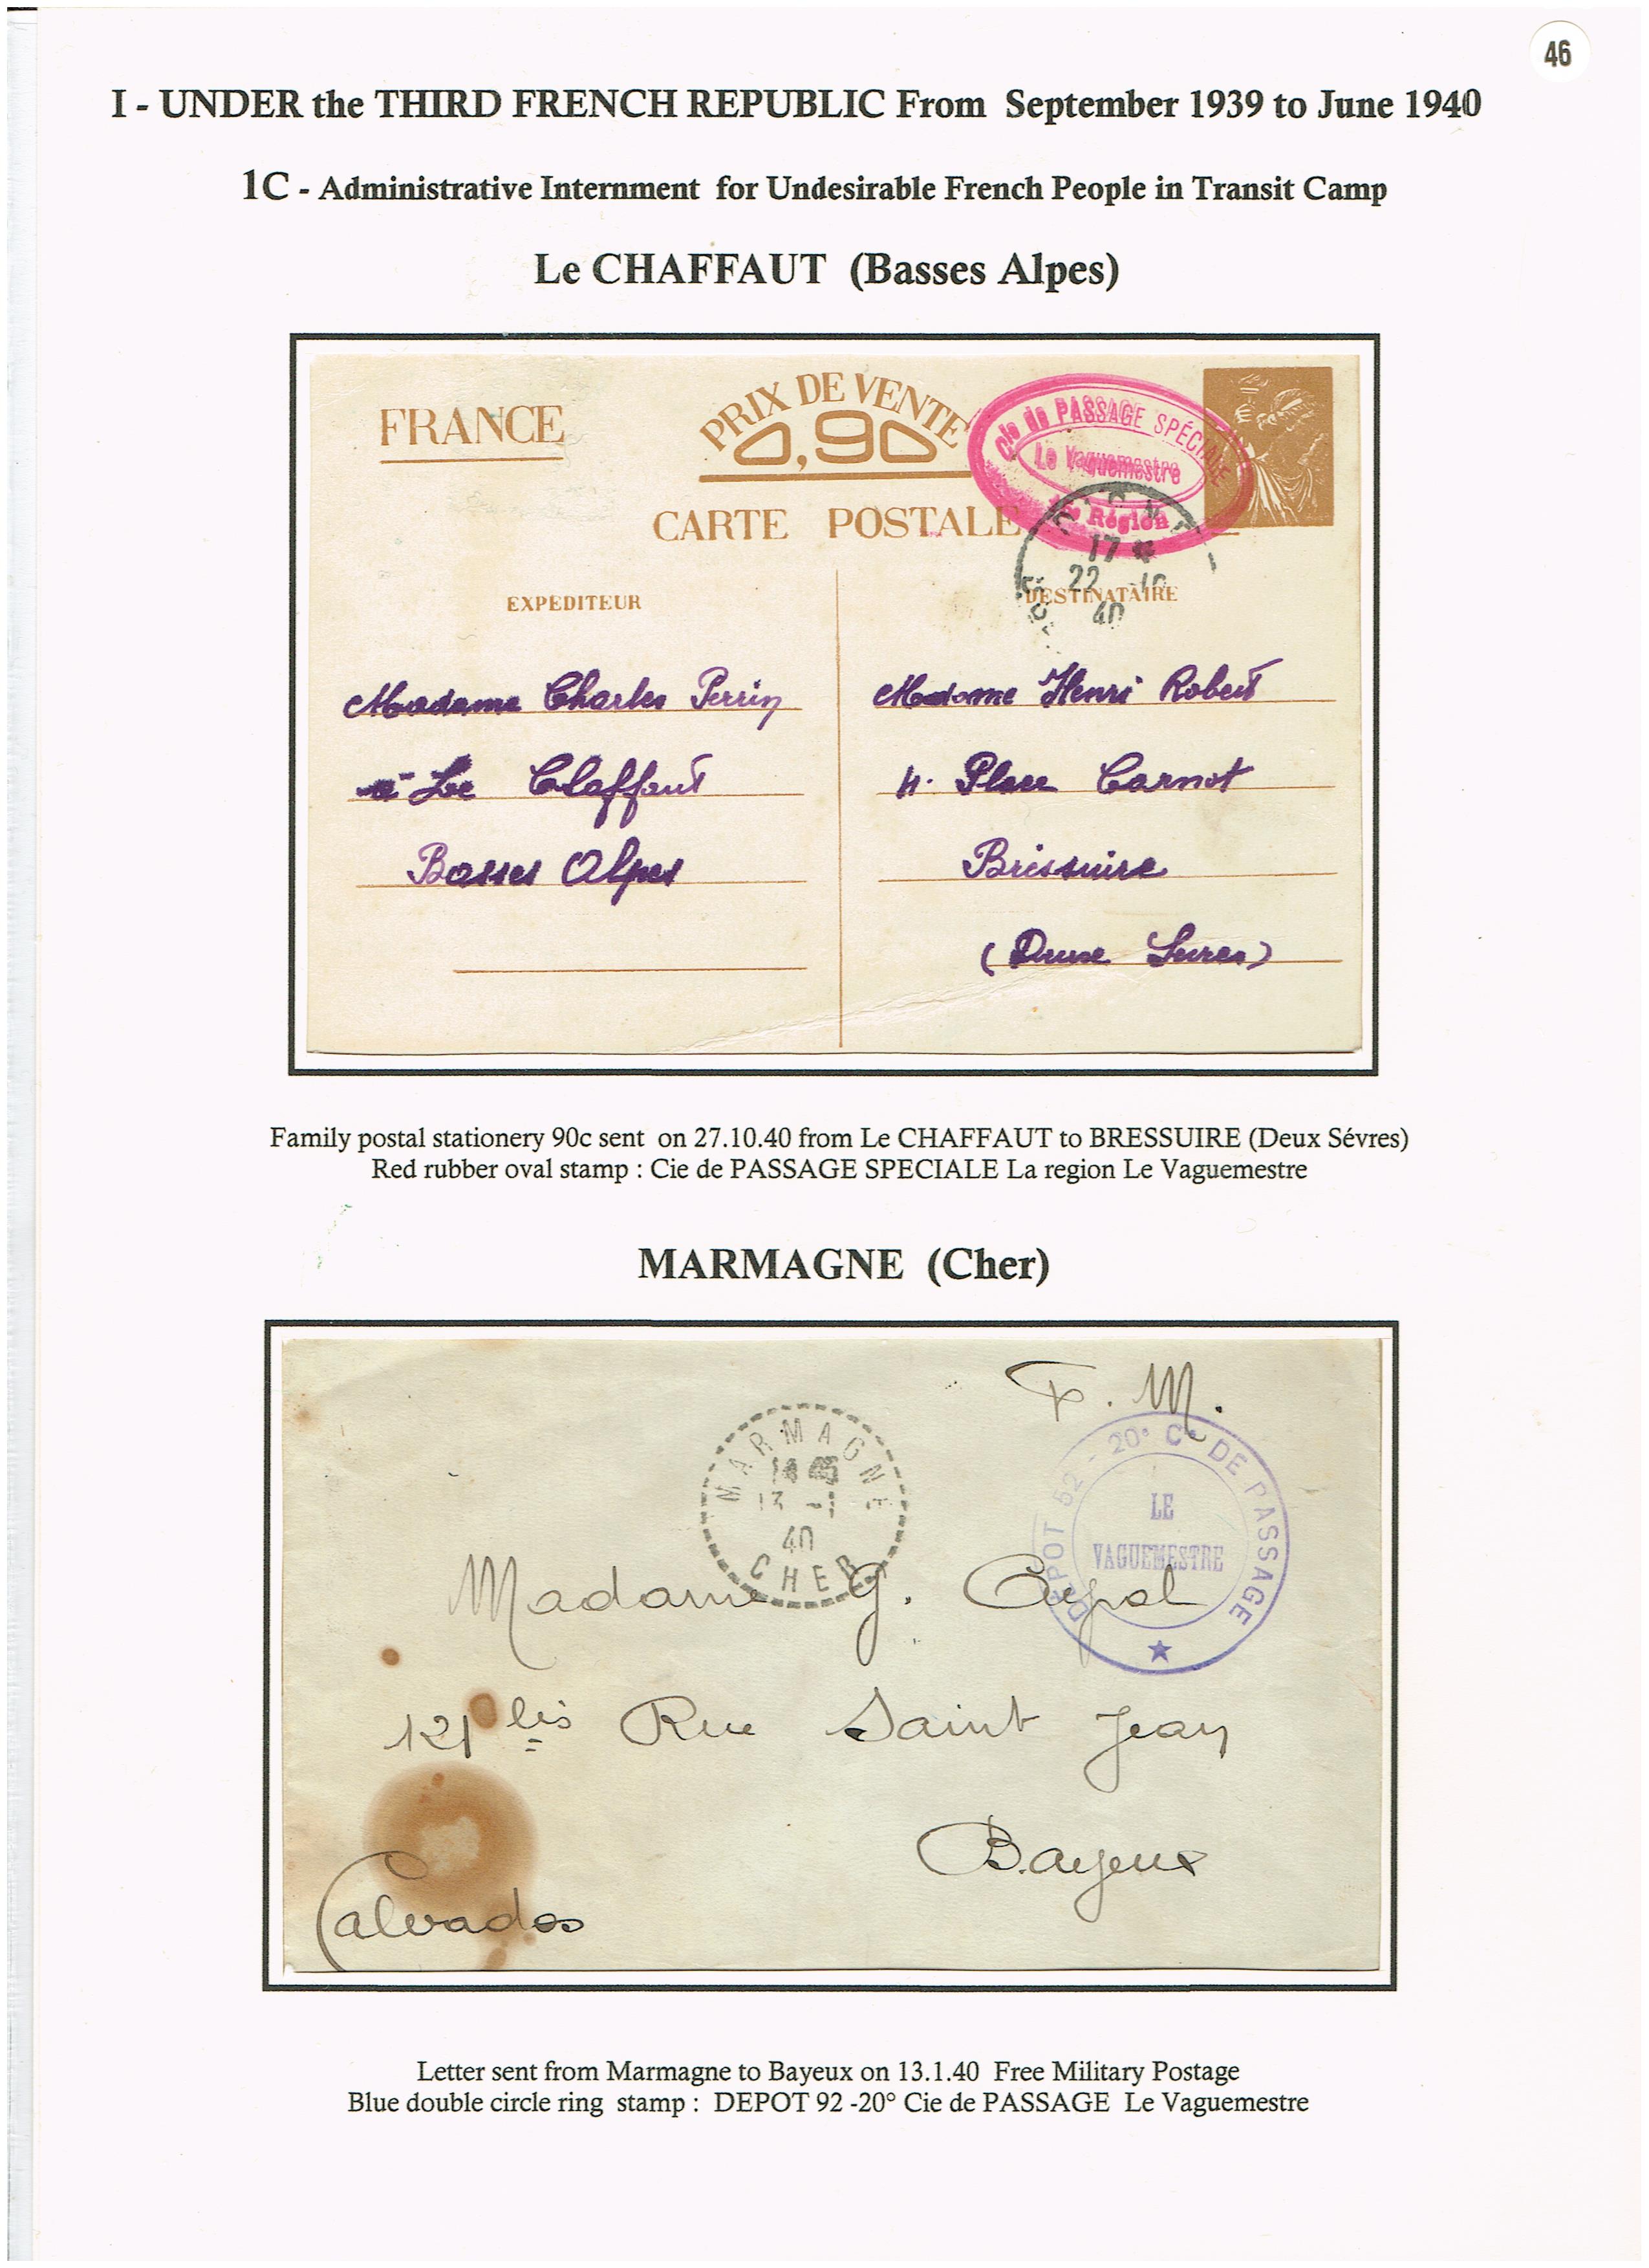 46
I - UNDER the THIRD FRENCH REPUBLIC From September 1939 to June 1940
1C - Administrative Internment for Undesirable French People in Transit Camp
Le CHAFFAUT (Basses Alpes)
FRANCE
PRIX DE VENTE
0,90
Cie de PASSAGE SPÉCIALE
Le Vaguemestre
Région
CARTE POSTALE
17
22 10
40
EXPÉDITEUR
DESTINATAIRE
Madame Charles Perrin
à Le Chaffaut
Basses Alpes
Madame Henri Robert
4. Place Carnot
Bressuire
(Deux Sevres)
Family postal stationery 90c sent on 27.10.40 from Le CHAFFAUT to BRESSUIRE (Deux Sévres)
Red rubber oval stamp : Cie de PASSAGE SPECIALE La region Le Vaguemestre
MARMAGNE (Cher)
F. M.
MARMAGNE
13 -1
40
CHER
DÉPOT 52 - 20e Cie DE PASSAGE
LE
VAGUEMESTRE
Madame G.
121 bis Rue Saint Jean
Bayeux
Calvados
Letter sent from Marmagne to Bayeux on 13.1.40 Free Military Postage
Blue double circle ring stamp : DEPOT 92 -20° Cie de PASSAGE Le Vaguemestre